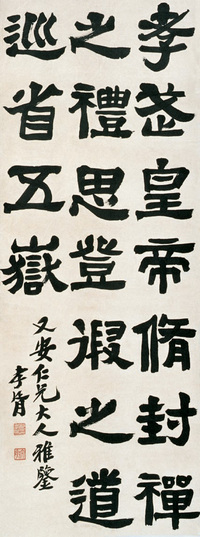 孝武皇帝脩封禪
之禮思登徦之道
巡省五嶽
又安仁兄大人雅鑒
李脩